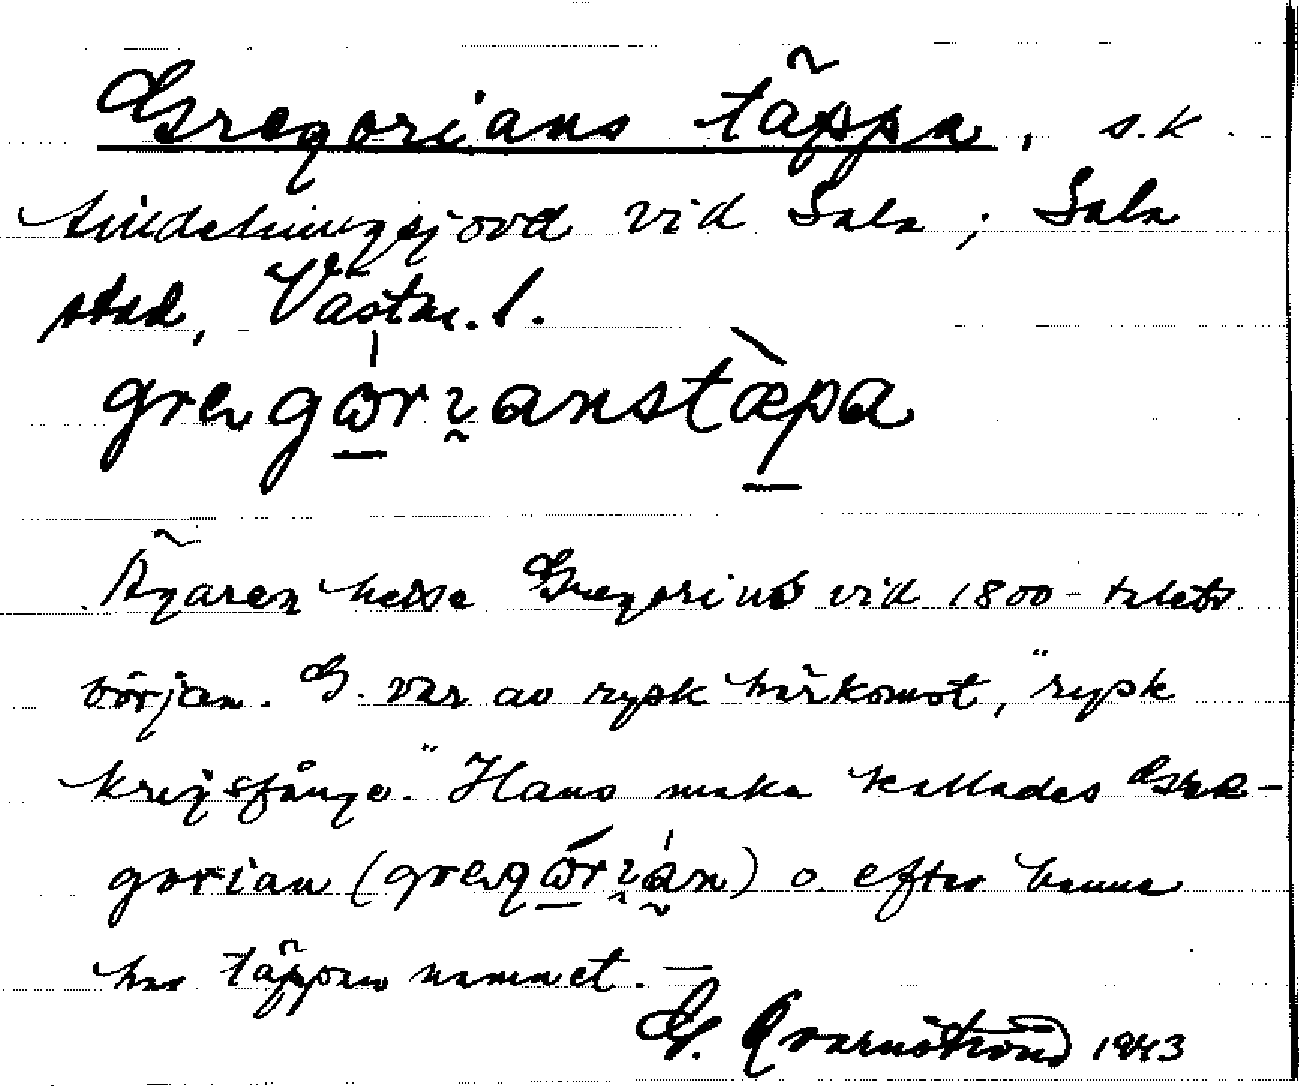 Gregorians täppa, s.k
tindelningsjord vid Sala; Sala
stad, Västm. l.
gregωrıanstæpa
Ägaren hette Gregorius vid 1800-talets
början. G. var av rysk härkomst, "rysk
krigsfånge." Hans maka kallades Gre-
gorian (gregωrıan) o. efter henne
har täppan namnet. —
G. Qvarnström 1943